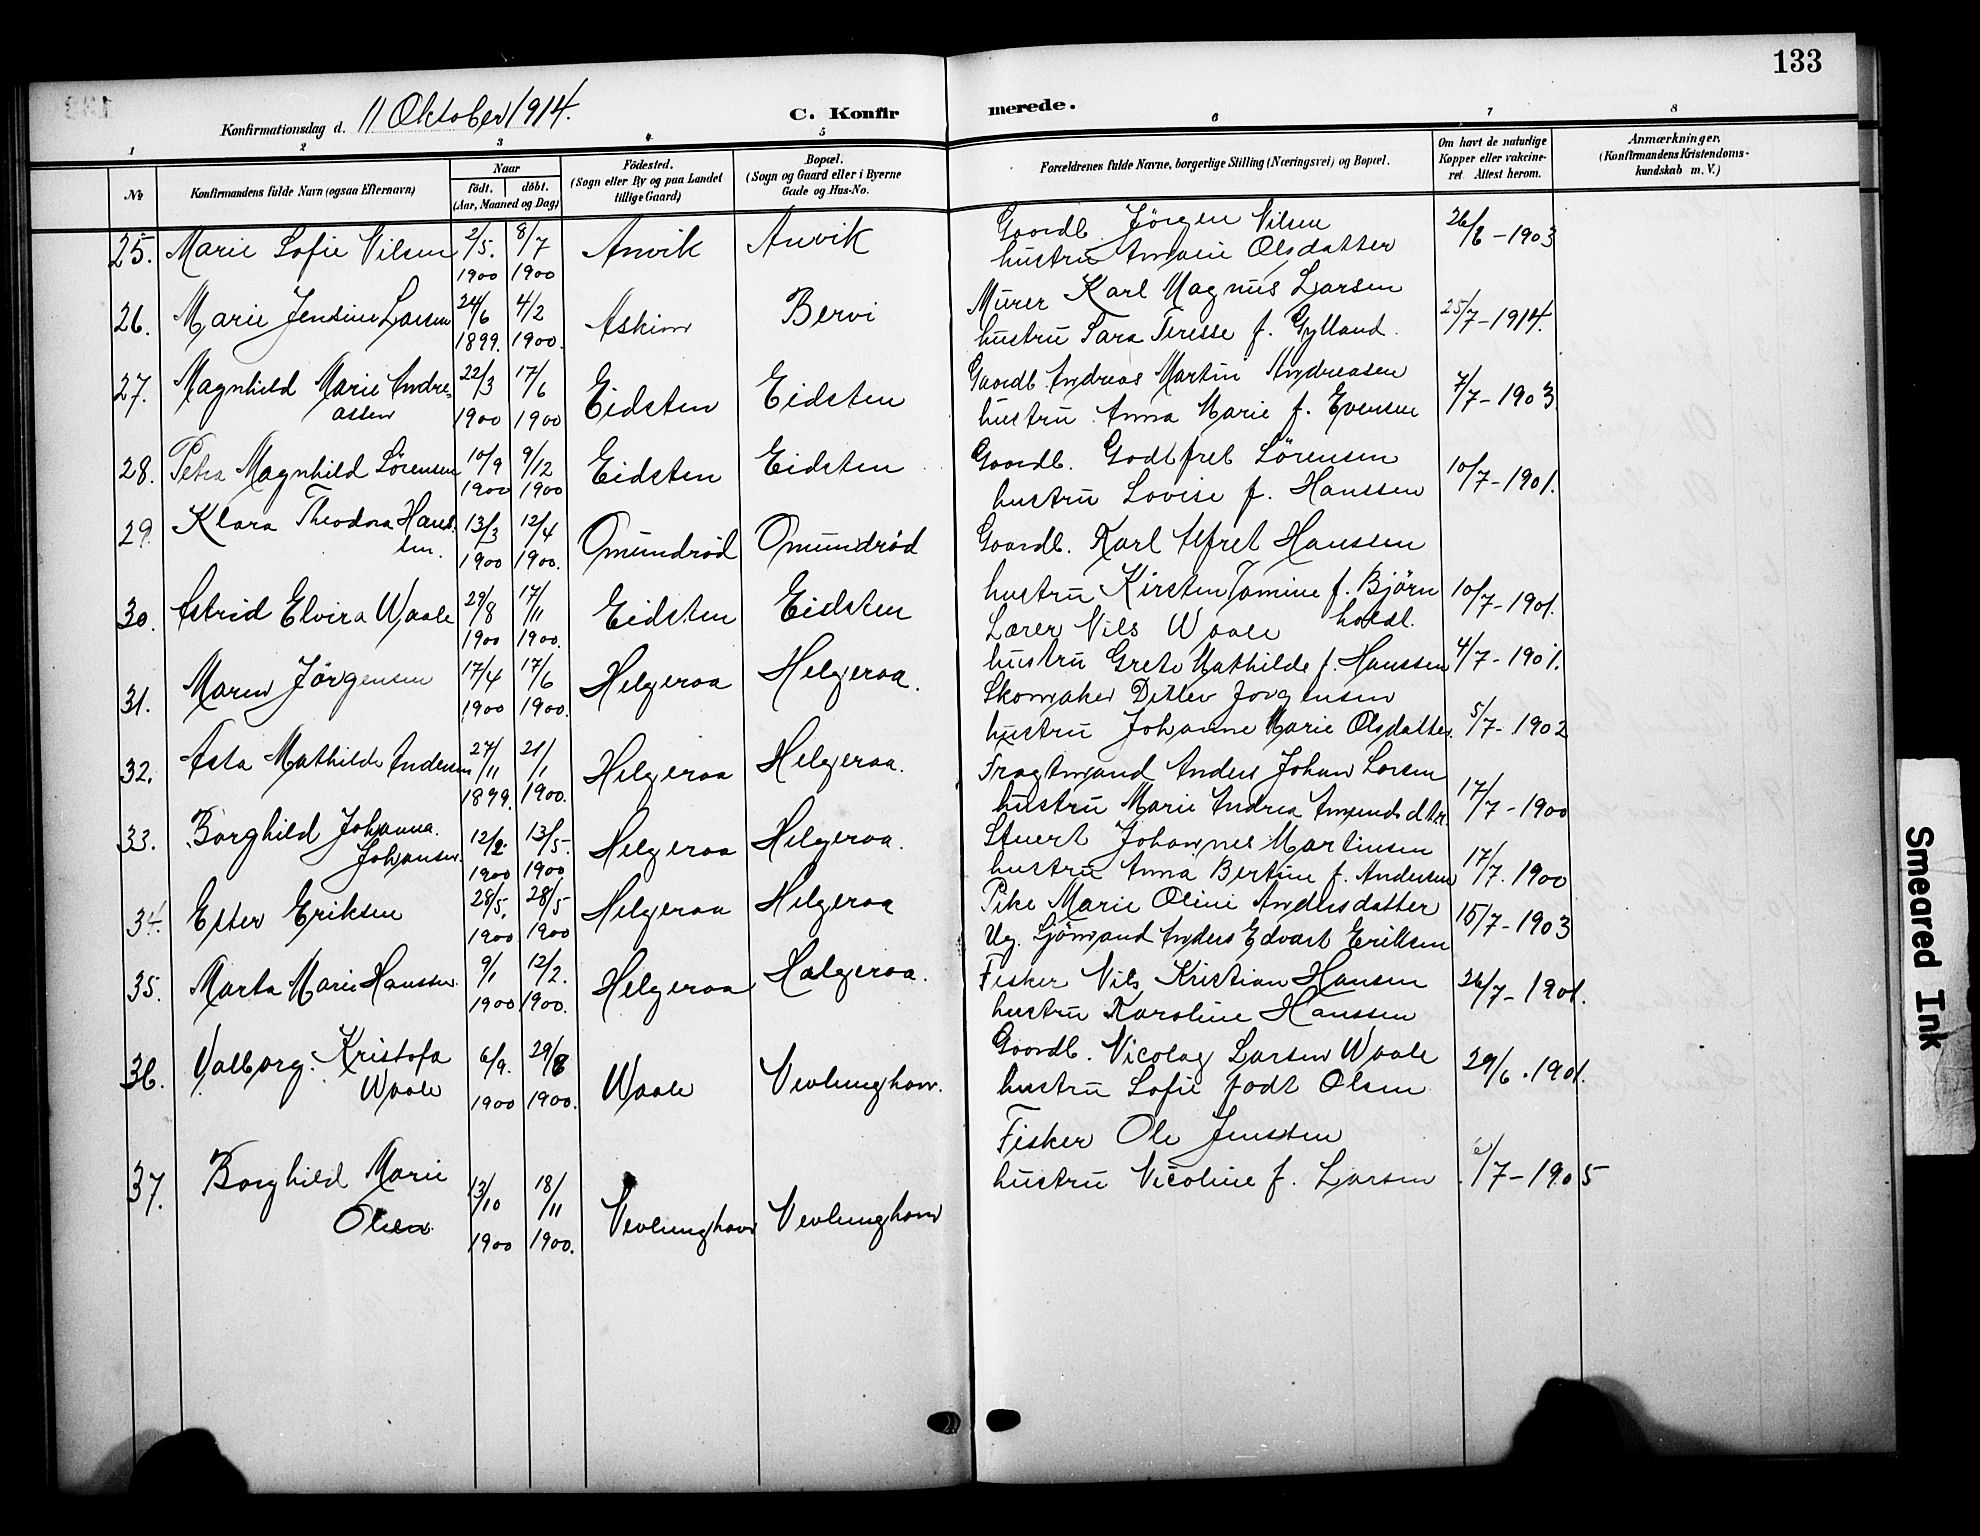 133
Konfirmationsdag d. 11 Oktober 1914.
C. Konfirmerede.
1 2 3 4 5 6 7 8
No
Konfirmandens fulde Navn (ogsaa Efternavn)
Naar
födt. döbt.
(Aar, Maaned og Dag)
Födested.
(Sogn eller By og paa Landet
tillige Gaard)
Bopæl.
(Sogn og Gaard eller i Byerne
Gade og Hus-No.
Forældrenes fulde Navne, borgerlige Stilling (Næringsvei) og Bopæl.
Om havt de naturlige
Kopper eller vakcine-
ret. Attest herom.
Anmærkninger.
(Konfirmandens Kristendoms-
kundskab m. V.)
25. Marie Sofie Nilsen 2/5. 8/7 Anvik Anvik Gaardb. Jörgen Nilsen 26/6 - 1903
1900 1900 hustru Olsdatter
26. Marie Jensine Larsen 24/6 4/2 Askim Bervi Murer Karl Magnus Larsen 25/7 - 1914.
1899. 1900. hustru Sara Teresse f. Gylland.
27. Magnhild Marie Andre- 22/3 17/6 Eidsten Eidsten Gaardb. Andreas Martin Andreasen 7/7 - 1903.
assen 1900 1900 hustru Anna Marie f. Evensen
28. Petra Magnhild Sörensen 10/9 9/12 Eidsten Eidsten Gaardb. Godtfret Sörensen 10/7 - 1901.
1900 1900 hustru Lovise f. Hanssen
29. Klara Theodora Hans- 13/3 12/4 Omundröd Omundröd Gaardb. Karl Alfret Hanssen
sen. 1900 1900.
hustru Kirsten Tomine f. Björn 10/7 - 1901.
holdt.
30. Astrid Elvira Waale 29/8 17/11 Eidsten Eidsten Lærer Nils Waale
1900 1900. hustru Grete Mathilde f. Hanssen 4/7 - 1901.
31. Maren Jörgensen 17/4 17/6 Helgeroa Helgeroa. Skomaker Detlev Jörgensen
1900 1900. hustru Johanne Marie Olsdatter. 5/7 - 1902
32. Asta Mathilde Andersen 27/11 21/1 Helgeroa Helgeroa. Fragtmand Anders Johan Larsen
1899. 1900. hustru Marie Andrea Amundsdtr. 17/7 - 1900
33. Borghild Johanna. 12/2 13/5. Helgeroa Helgeroa. Stuert Johannes Martinsen
Johansen. 1900 1900 hustru Anna Bertine f. Andersen 17/7. 1900
34. Ester Eriksen 28/5. 28/5 Helgeroa Helgeroa Pike Marie Oline Andersdatter 15/7 - 1903
1900 1900 Ug. Sjömand Anders Edvart Eriksen
35. Marta Marie Hanssen. 9/1 12/2. Helgeroa Helgeroa. Fisker Nils Kristian Hansen 26/7 - 1901.
1900 1900. hustru Karoline Hanssen
36. Valborg Kristofa 6/9. 29/8 Waale Nevlunghavn. Gaardb. Nicolay Larsen Waale 29/6 . 1901.
Waale 1900 1900. hustru Sofie födt Olsen
Fisker Ole Jenssen
37. Borghild Marie 13/10 18/11 Nevlunghavn Nevlunghavn hustru Nicoline f. Larsen 6/7 - 1905
Olsen 1900 1900.
Smeared Ink